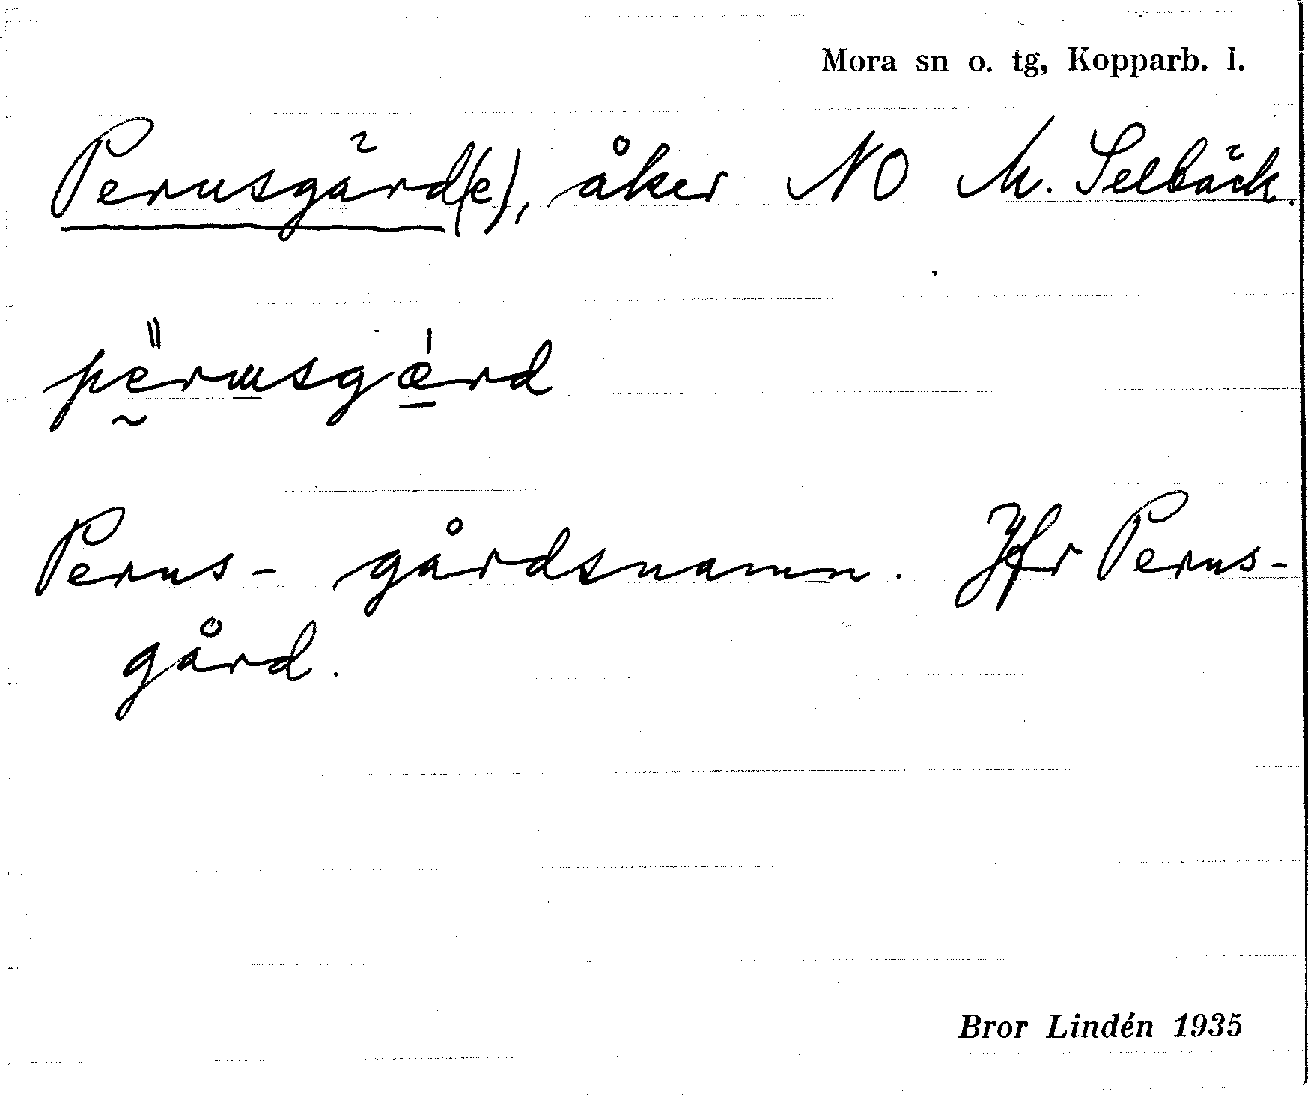 Mora sn o. tg, Kopparb. l.
Perusgärd(e), åker NO M. Selbäck.
pèrusgǽrd
Perus- gårdsnamn. Jfr Perus-
gård.
Bror Lindén 1935